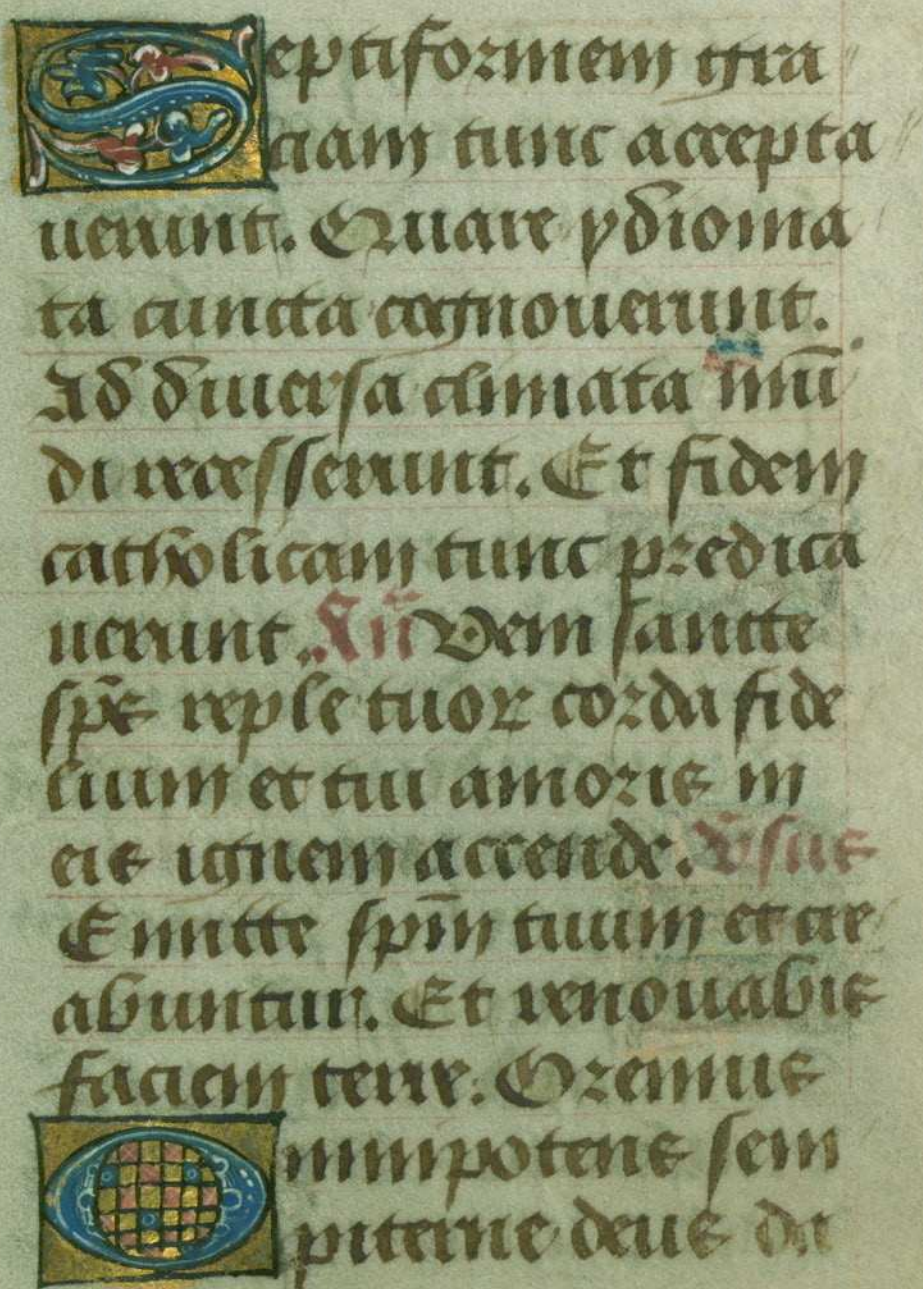 Septiformem gra
ciam tunc accepta
uerunt. Quare ydioma
ta cuncta cognouerunt.
Ad diuersa climata mū
di recesserunt. Et fidem
catholicam tunc predica
uerunt. Añ Veni sancte
sp̄e reple tuoꝝ corda fide
lium et tui amoris in
eis ignem accende. V̄sus
Emitte sp̄m tuum et cre
abuntur. Et renouabis
faciem terre. Oremus
Omnipotens sem
piterne deus da